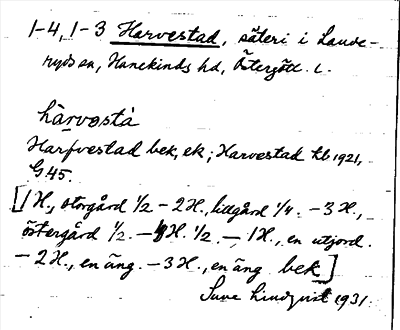 1-4, 1-3 Harvestad, säteri i Lande-
ryds sn, Hanekinds hd, Östergötl. l.
hàrvəstá
Harfvestad bek, ek; Harvestad kb 1921,
G 45.
[1 H., storgård 1/2 - 2 H., lillgård 1/4. - 3 H.,
östergård 1/2. - 4 H. 1/2. - 1 H., en utjord.
- 2 H., en äng. - 3 H., en äng bek]
Sune Lindqvist 1931.